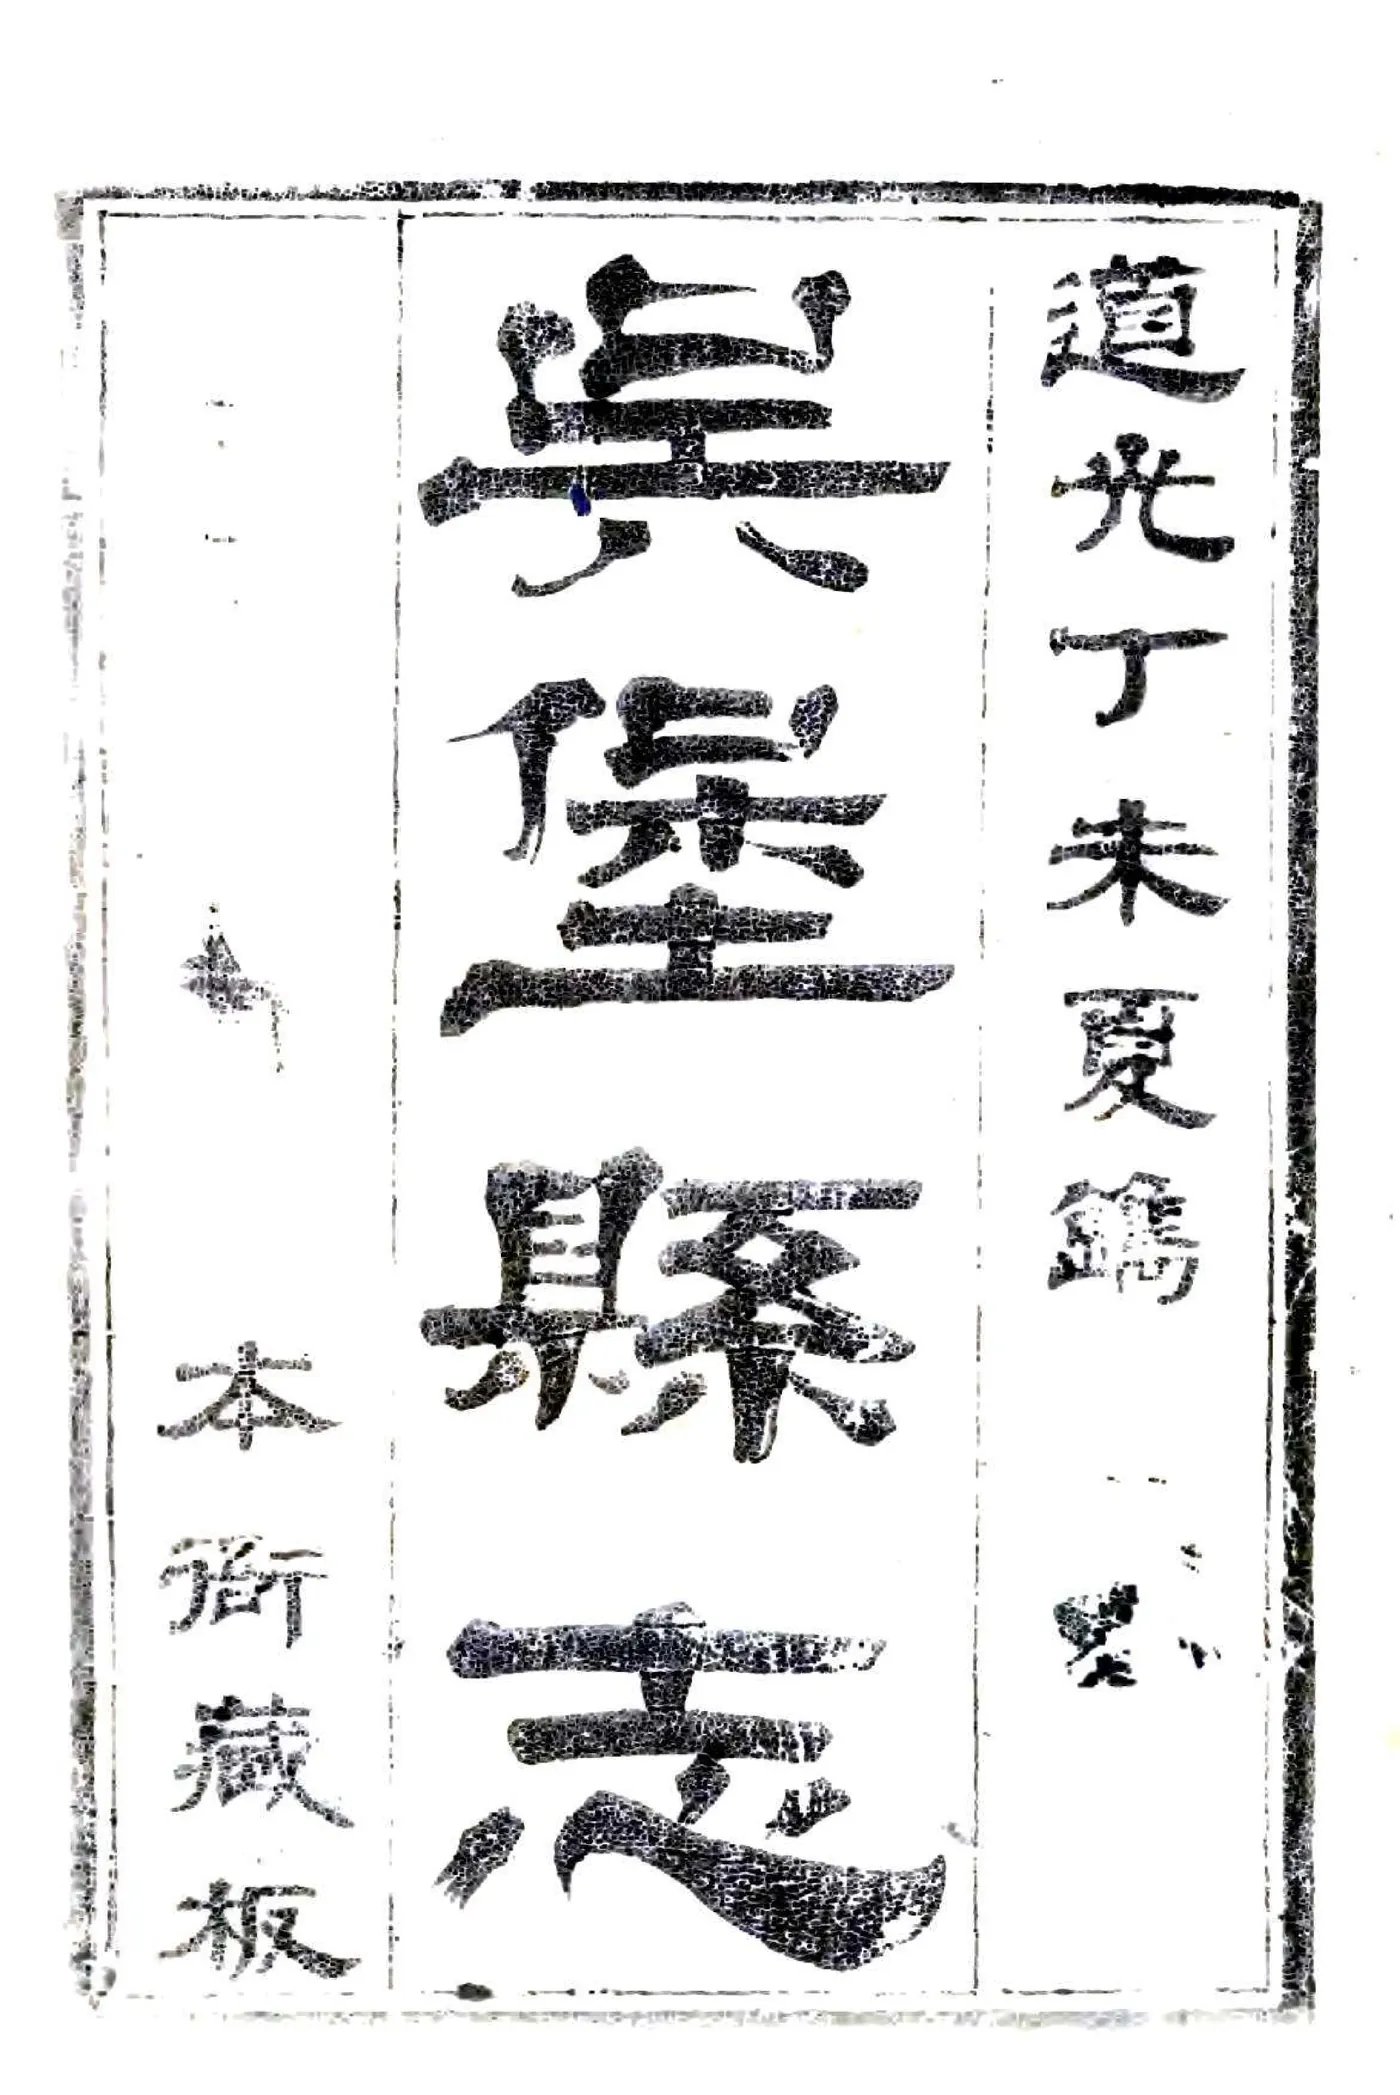 道光丁未夏鐫
吳堡縣志
本衙藏板